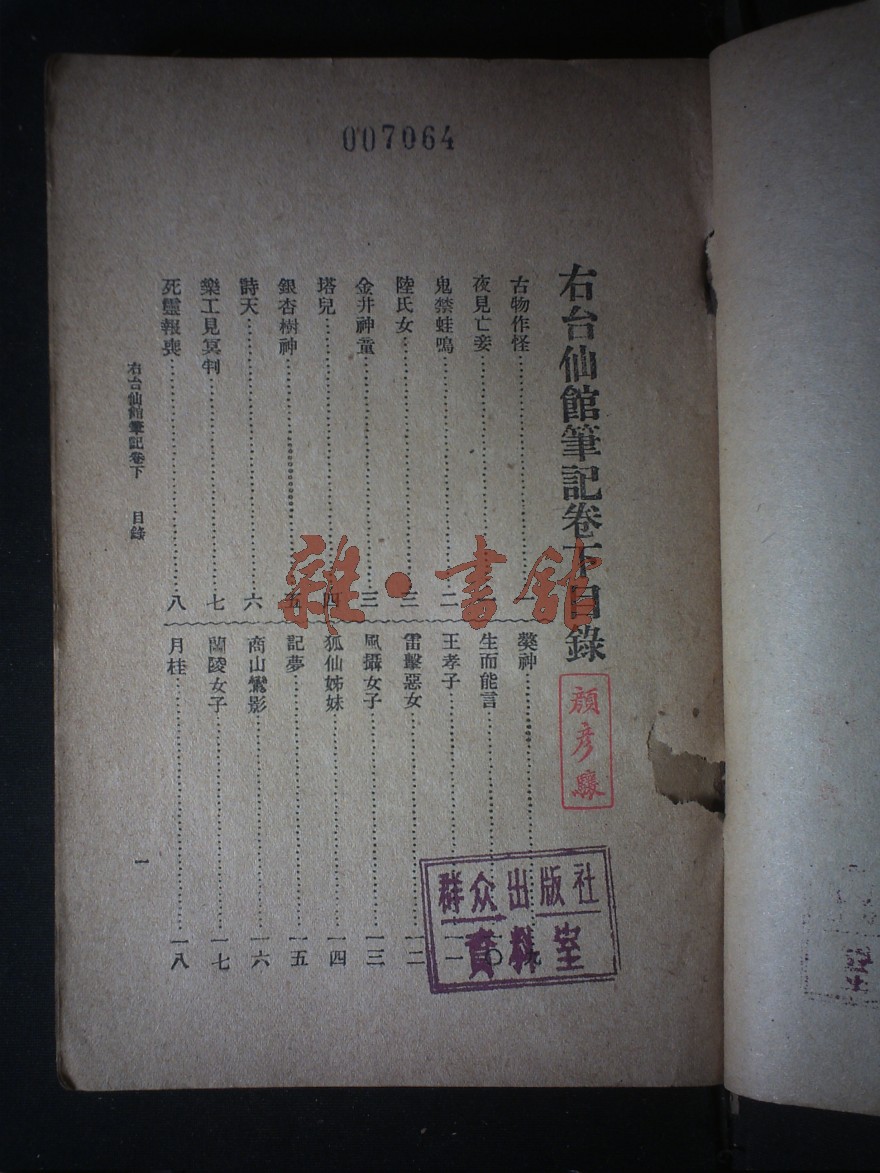 007064
右台仙館筆記卷下目錄
古物作怪……一
夜見亡妾
鬼禁蛙鳴……二
陸氏女……三
金井神童……三
塔兒……四
銀杏樹神……五
詩天……六
樂工見冥判……七
死靈報喪……八
獎神……九
生而能言……一〇
王孝子……一一
雷擊惡女……一二
風攝女子……一三
狐仙姊妹……一四
記夢……一五
商山鸞影……一六
蘭陵女子……一七
月桂……一八
右台仙館筆記卷下 目錄
一
顏彥驤
群众出版社
資料室
雜·書館